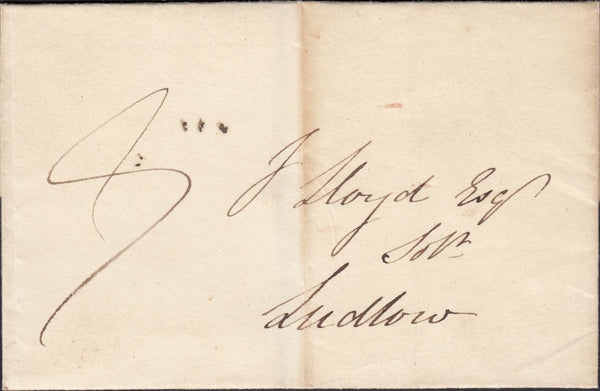 J Lloyd Esqr
Solr
Ludlow